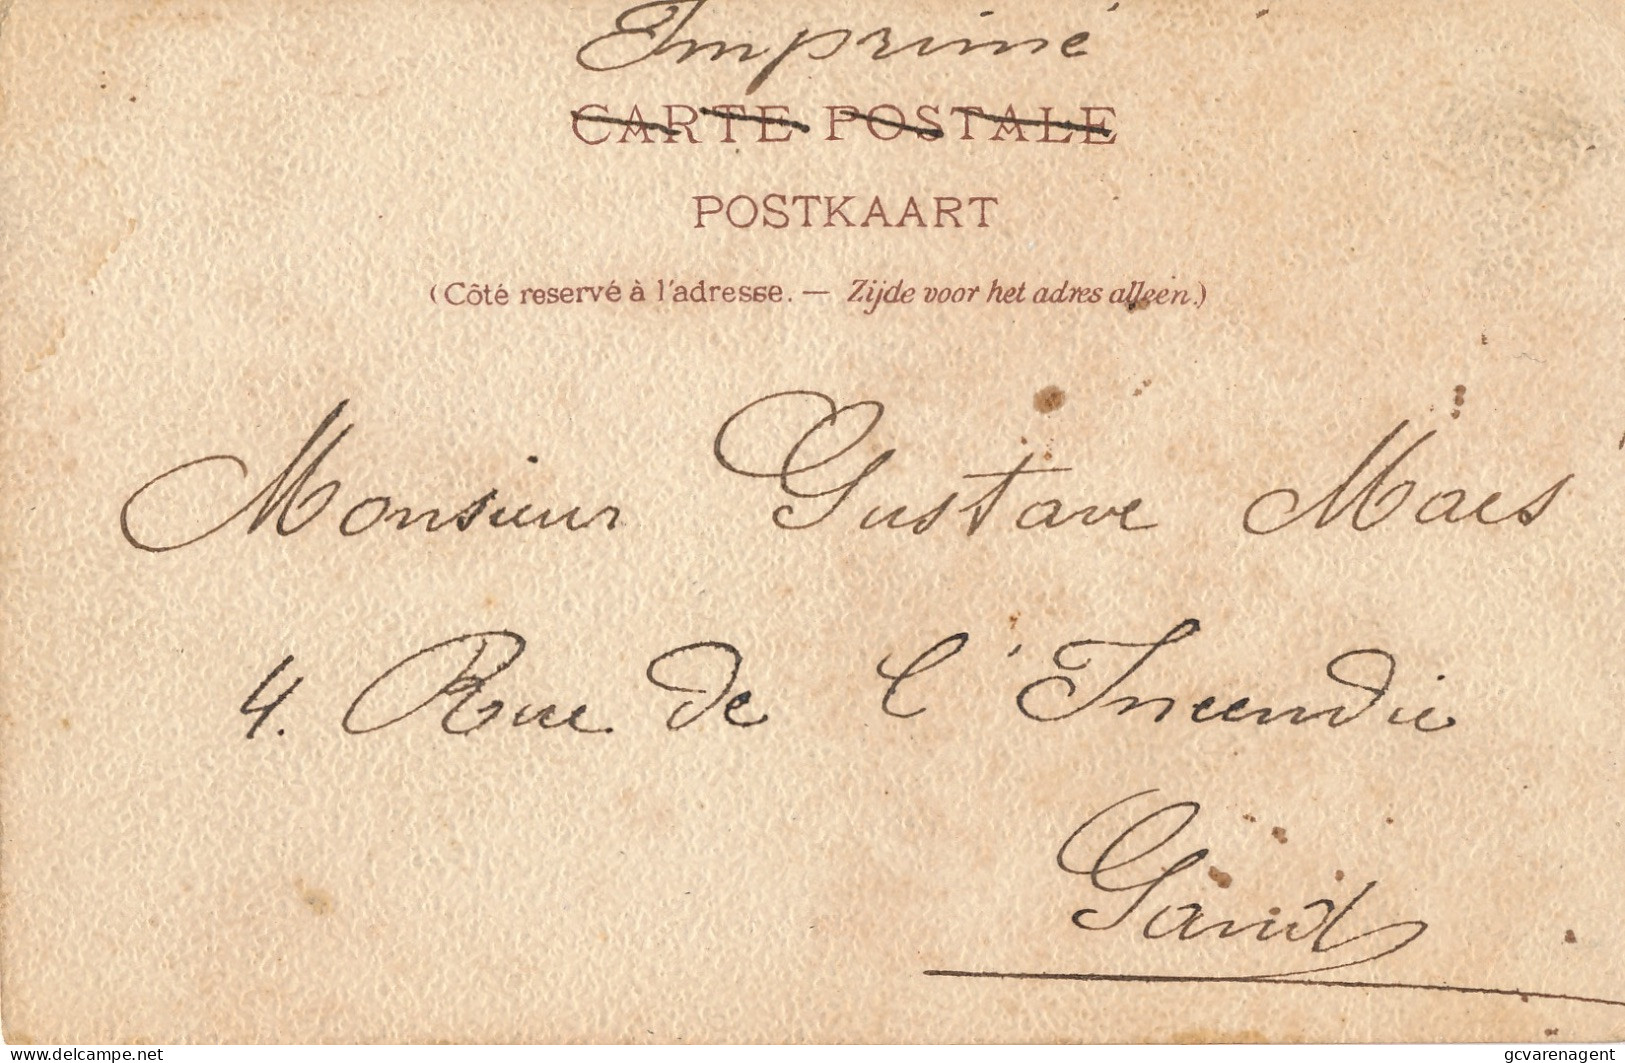 Imprimé
CARTE POSTALE
POSTKAART
(Côté reservé à l'adresse. — Zijde voor het adres alleen.)
Monsieur Gustave Maes
4. Rue de l'Incendie
Gand
www.delcampe.net
gcvarenagent